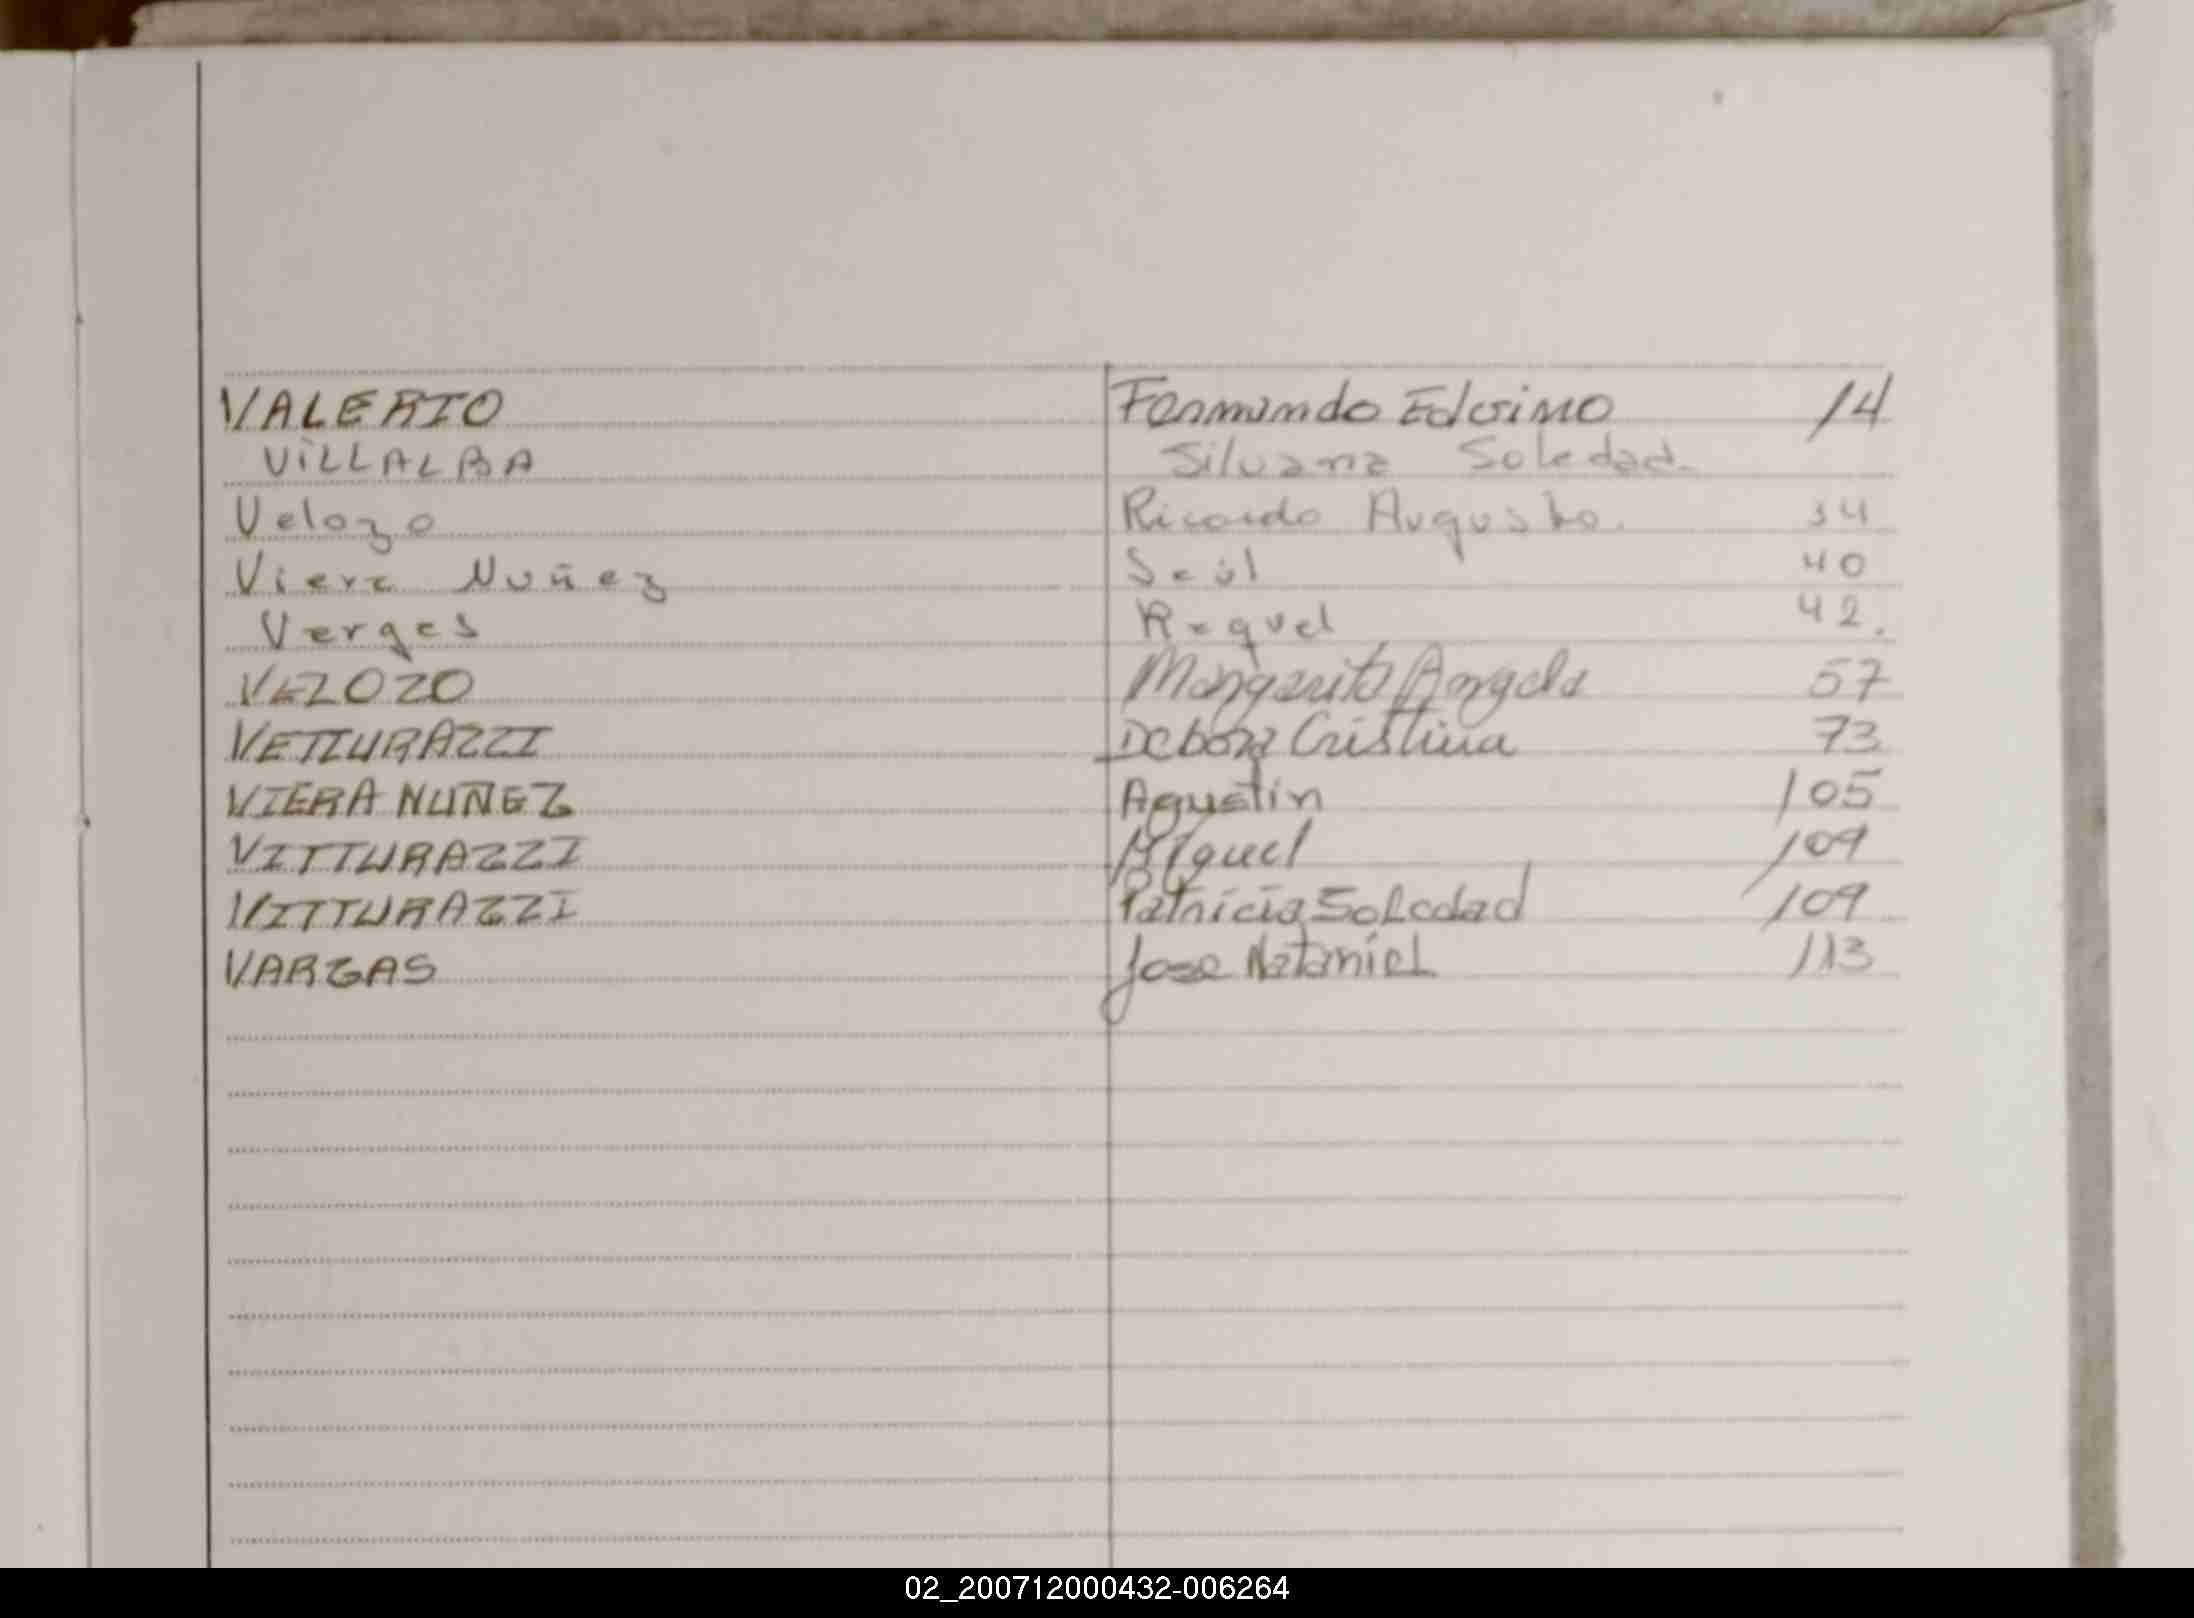 VALERIO Fernando Edesimo 14
VILLALBA Silvana Soledad
Velozo Ricardo Augusto. 34
Viera Nuñez Saúl 40
Verges Raquel 42.
VELOZO Margarita Angela 57
VETTURAZZI Debora Cristina 73
VIERA NUÑEZ Agustin 105
VITTURAZZI Miguel 109
VITTURAZZI Patricia Soledad 109
VARGAS Jose Nataniel 113
02_200712000432-006264